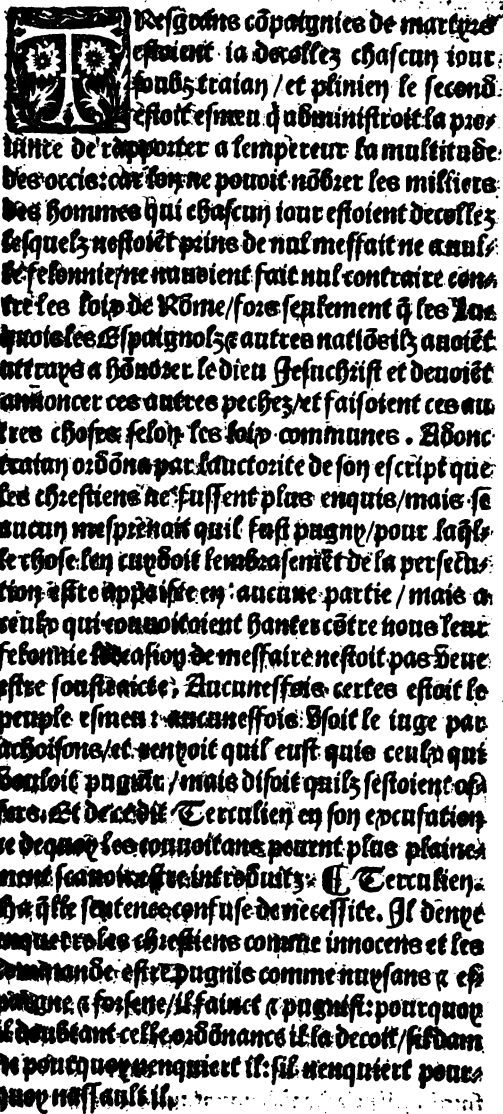 TResgrãns cõpaignies de martyrs
estoient ia decollez chascun iour
soubz traian / et plinien le second
estoit esmeu q̃ administroit la pro-
uince de rapporter a lempereur la multitude
des occis: car lon ne pouoit nõbrer les milliers
des hommes qui chascun iour estoient decollez
lesquelz nestoiẽt prins de nul meffait ne a nul-
le felonnie/ne nauoient fait nul contraire con-
tre les loix de Rõme/fors seulement q̃ les
les Espaignolz ⁊ autres natiõs ilz auoiẽt
attrays a hõnorer le dieu Jesuchrist et deuoiẽt
annoncer ces autres pechez/et faisoient ces au
tres choses selon les loix communes. Adonc
traian ordõna par lauctorite de son escript que
les chrestiens ne fussent plus enquis/mais se
aucun mesprenait quil fust pugny/pour laq̃l-
le chose len cuydoit lembrasemẽt de la persecu-
tion estre appaisee en aucune partie / mais a
ceulx qui conuoitoient hanter cõtre nous leur
felonnie locasion de meffaire nestoit pas veue
estre soustraicte. Aucuneffois certes estoit le
peuple esmeu: aucuneffois vsoit le iuge par
achoisons/et venyoit quil eust quis ceulx qui
vouloit pugnir /mais disoit quilz sestoient of-
fers. Et de ce dit Terculien en son excusation
ce dequoy les conuoitans peurnt plus plaine-
ment scauoir estre introduitz. ¶ Terculien.
Ha q̃lle sentence confuse de necessite. Il denye
enquerre les chrestiens comme innocens et les
commande estre pugnis comme nuysans ⁊ es-
pargne ⁊ forsene/il fainct ⁊ pugnist: pourquoy
il doubtant celle ordõnance il la decoit/
ne pourquoy nenquiert il: sil nenquiert pour-
quoy nassault il.